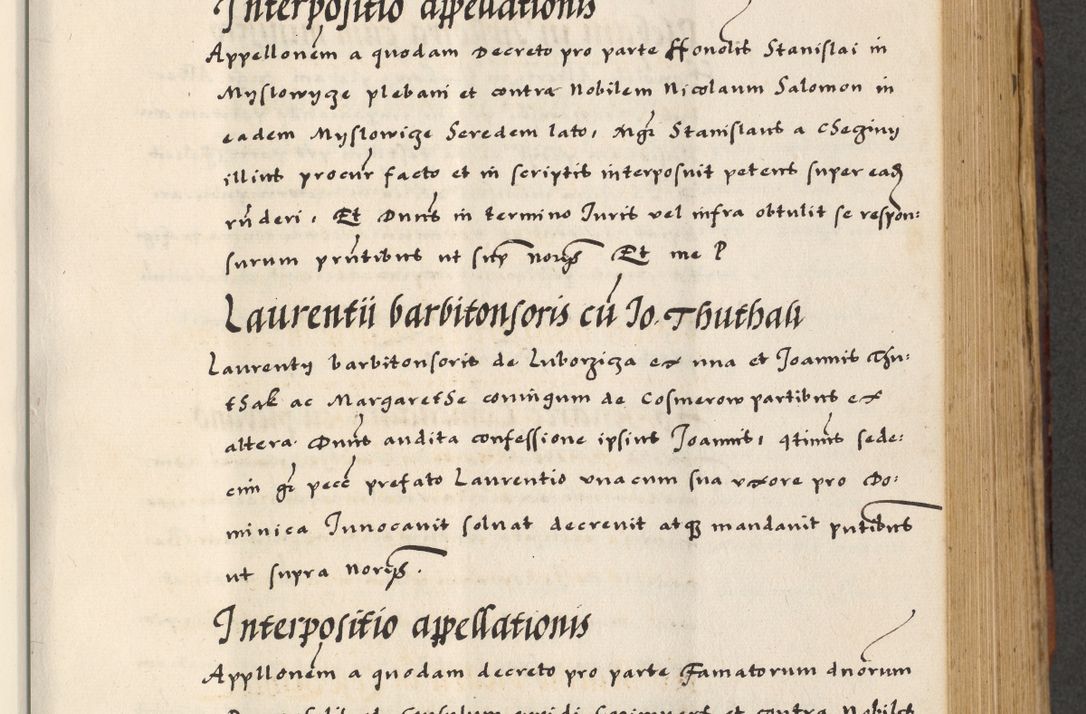 Interpositio appellationis
Appellonem a quodam Decreto pro parte Honolis Stanislai in
Myslowycze plebani et contra Nobilem Nicolaum Salomon in
eadem Myslowicze heredem lato, Mgr Stanislaus a Cheginy
illius procur facto et in scriptis interposuit petens super ead
rnderi, Et Dnus in termino Iuris vel infra obtulit se respon:
surum prntibus ut sup noris Et me P
Laurentii barbitonsoris cu Io. Thuthak
Laurentij barbitonsoris de Luborzicza ex una et Joannis Thu:
thak ac Margarethe coniugum de Cosmerow partibus ex
altera Dnus audita confessione ipsius Joannis, qtinus sede:
cim gr pecc prefato Laurentio unacum sua uxore pro Do:
minica Innocavit solvat decrevit atq mandavit pntibus
ut supra noris.
Interpositio appellationis
Appllonem a quodam decreto pro parte Famatorum dnorum
et contra Nobiles